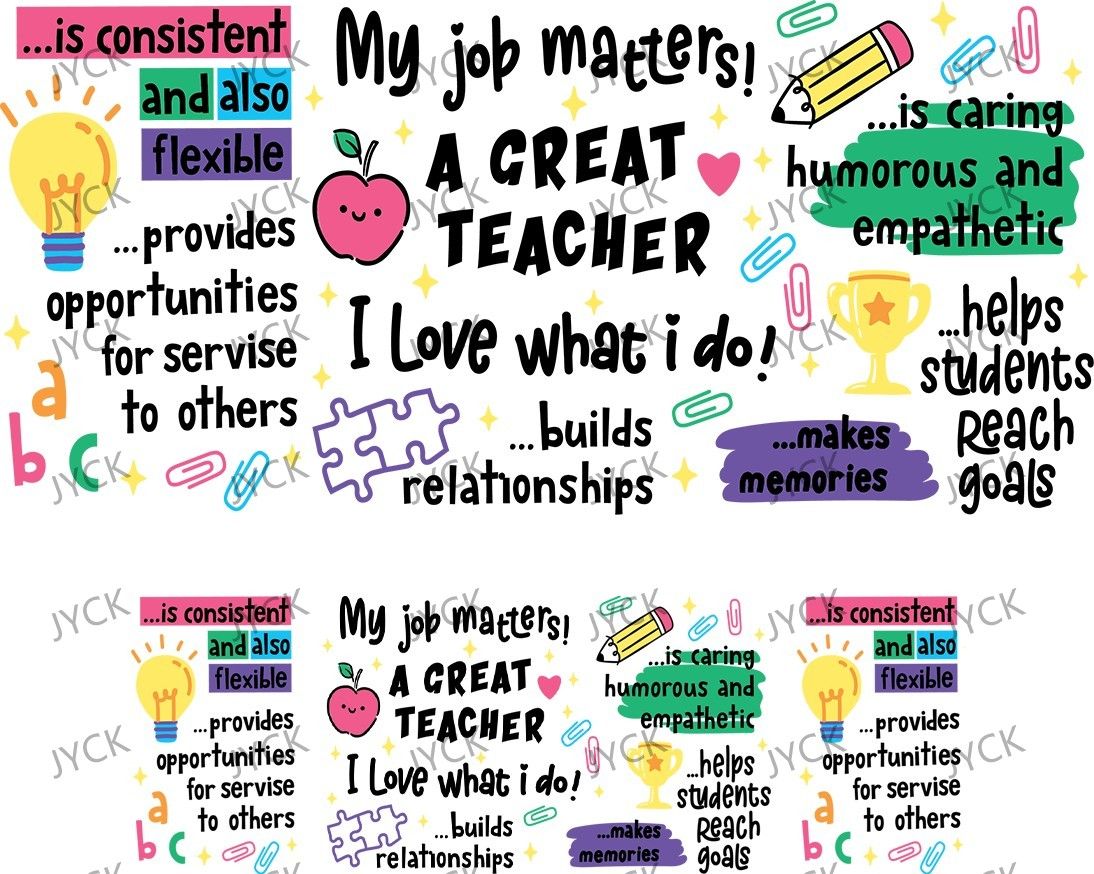 ...is consistent
and also
flexible
...provides
opportunities
for servise
to others
a
b c
My job matters!
A GREAT
TEACHER
I Love what i do!
...builds
relationships
...is caring
humorous and
empathetic
...helps
students
Reach
goals
...makes
memories
...is consistent
and also
flexible
...provides
opportunities
for servise
to others
a
b c
My job matters!
A GREAT
TEACHER
I Love what i do!
...builds
relationships
...is caring
humorous and
empathetic
...helps
students
Reach
goals
...makes
memories
...is consistent
and also
flexible
...provides
opportunities
for servise
to others
a
b c
JYCK